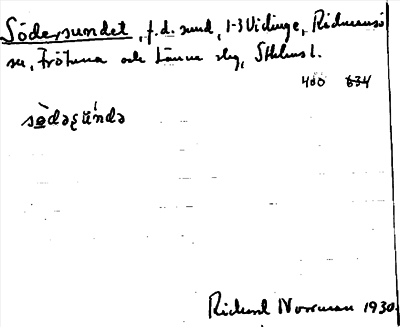 Södersundet, f.d. sund, 1-3 Vidinge, Ridmansö
sn, Frötuna och Länna slg, Sthlms l.
400 634
Rickard Norrman 1930.